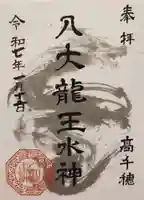 奉拝
高千穂
八大龍王水神
令和七年一月十五日